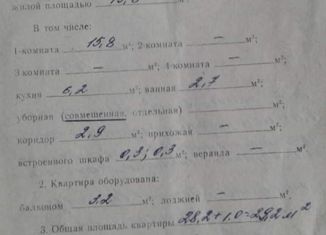 жилой площадью
В том числе:
1-комната 15,8 м²; 2-комната — м²;
3-комната — м²; 4-комната — м²;
кухня 6,2 м²; ванная 2,7 м²;
уборная (совмещенная, отдельная) м²;
коридор 2,9 м²; прихожая — м²;
встроенного шкафа 0,3; 0,3 м²; веранда — м².
2. Квартира оборудована:
балконом 3,2 м²; лоджией — м².
3. Общая площадь квартиры 28,2+1,0=29,2 м²